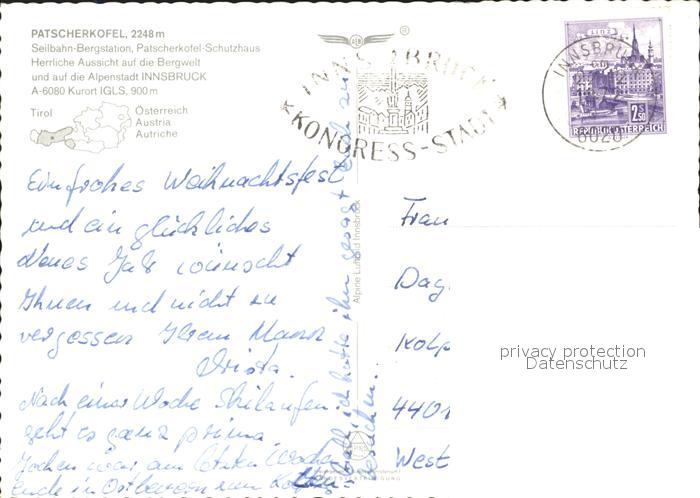 PATSCHERKOFEL, 2248 m
Seilbahn-Bergstation, Patscherkofel-Schutzhaus
Herrliche Aussicht auf die Bergwelt
und auf die Alpenstadt INNSBRUCK
A-6080 Kurort IGLS, 900 m
Tirol
Österreich
Austria
Autriche
INNSBRUCK
KONGRESS-STADT
INNSBRUCK
6020
LINZ
2.50
REPUBLIK ÖSTERREICH
Ein frohes Weihnachtsfest
und ein glückliches
Neues Jahr wünscht
Ihnen und nicht zu
vergessen Ihrem Mann
Christa.
Nach einer Woche Skilaufen
geht es ganz prima.
Jochen war am letzten Wochen
ende in Ostbevern zum
ich hatte ihm gesagt
besuchen.
Alpine Luftbild Innsbruck
Frau
Dag
Kolp
4401
West
privacy protection
Datenschutz